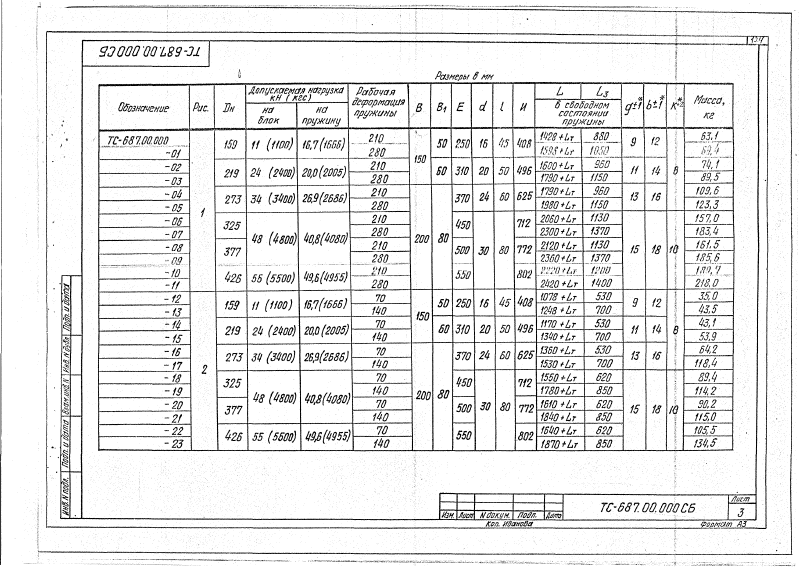 ТС-687.00.000СБ
124
Размеры в мм
Обозначение Рис. Dн Допускаемая нагрузка кН (кгс) на блок на пружину Рабочая деформация пружины B B1 E d l И L L3 в свободном состоянии пружины g±1* b±1* K* Масса, кг
ТС-687.00.000 1 159 11 (1100) 16,7(1666) 210 150 50 250 16 45 408 1420+Lт 880 9 12 8 63,1
-01 280 1050 69,4
-02 219 24 (2400) 20,0(2005) 210 60 310 20 50 496 1600+Lт 960 11 14 74,1
-03 280 1790+Lт 1150 89,5
-04 273 34 (3400) 26,9(2686) 210 200 80 370 24 60 625 1790+Lт 960 13 16 10 109,6
-05 280 1980+Lт 1150 123,3
-06 325 48 (4800) 40,8(4080) 210 450 30 80 712 2060+Lт 1130 15 18 157,0
-07 280 2300+Lт 1370 183,4
-08 377 210 500 772 2120+Lт 1130 161,5
-09 280 2360+Lт 1370 185,6
-10 426 55 (5500) 49,6(4955) 210 550 802 1200
-11 280 2420+Lт 1400 218,0
-12 2 159 11 (1100) 16,7(1666) 70 150 50 250 16 45 408 1078+Lт 530 9 12 8 35,0
-13 140 1248+Lт 700 43,5
-14 219 24 (2400) 20,0(2005) 70 60 310 20 50 496 1170+Lт 530 11 14 43,1
-15 140 1340+Lт 700 53,9
-16 273 34 (3400) 26,9(2686) 70 200 80 370 24 60 625 1360+Lт 530 13 16 10 64,2
-17 140 1530+Lт 700 118,4
-18 325 48 (4800) 40,8(4080) 70 450 30 80 712 1550+Lт 620 15 18 89,4
-19 140 1780+Lт 850 114,2
-20 377 70 500 772 1610+Lт 620 90,2
-21 140 1840+Lт 850 115,0
-22 426 55 (5500) 49,6(4955) 70 550 802 1640+Lт 620 105,5
-23 140 1870+Lт 850 134,5
Инв. N подл. Подп. и дата Взам. инв. N Инв. N дубл. Подп. и дата
Изм. Лист N докум. Подп. Дата
ТС-687.00.000СБ
Лист
3
Коп. Иванова
Формат А3